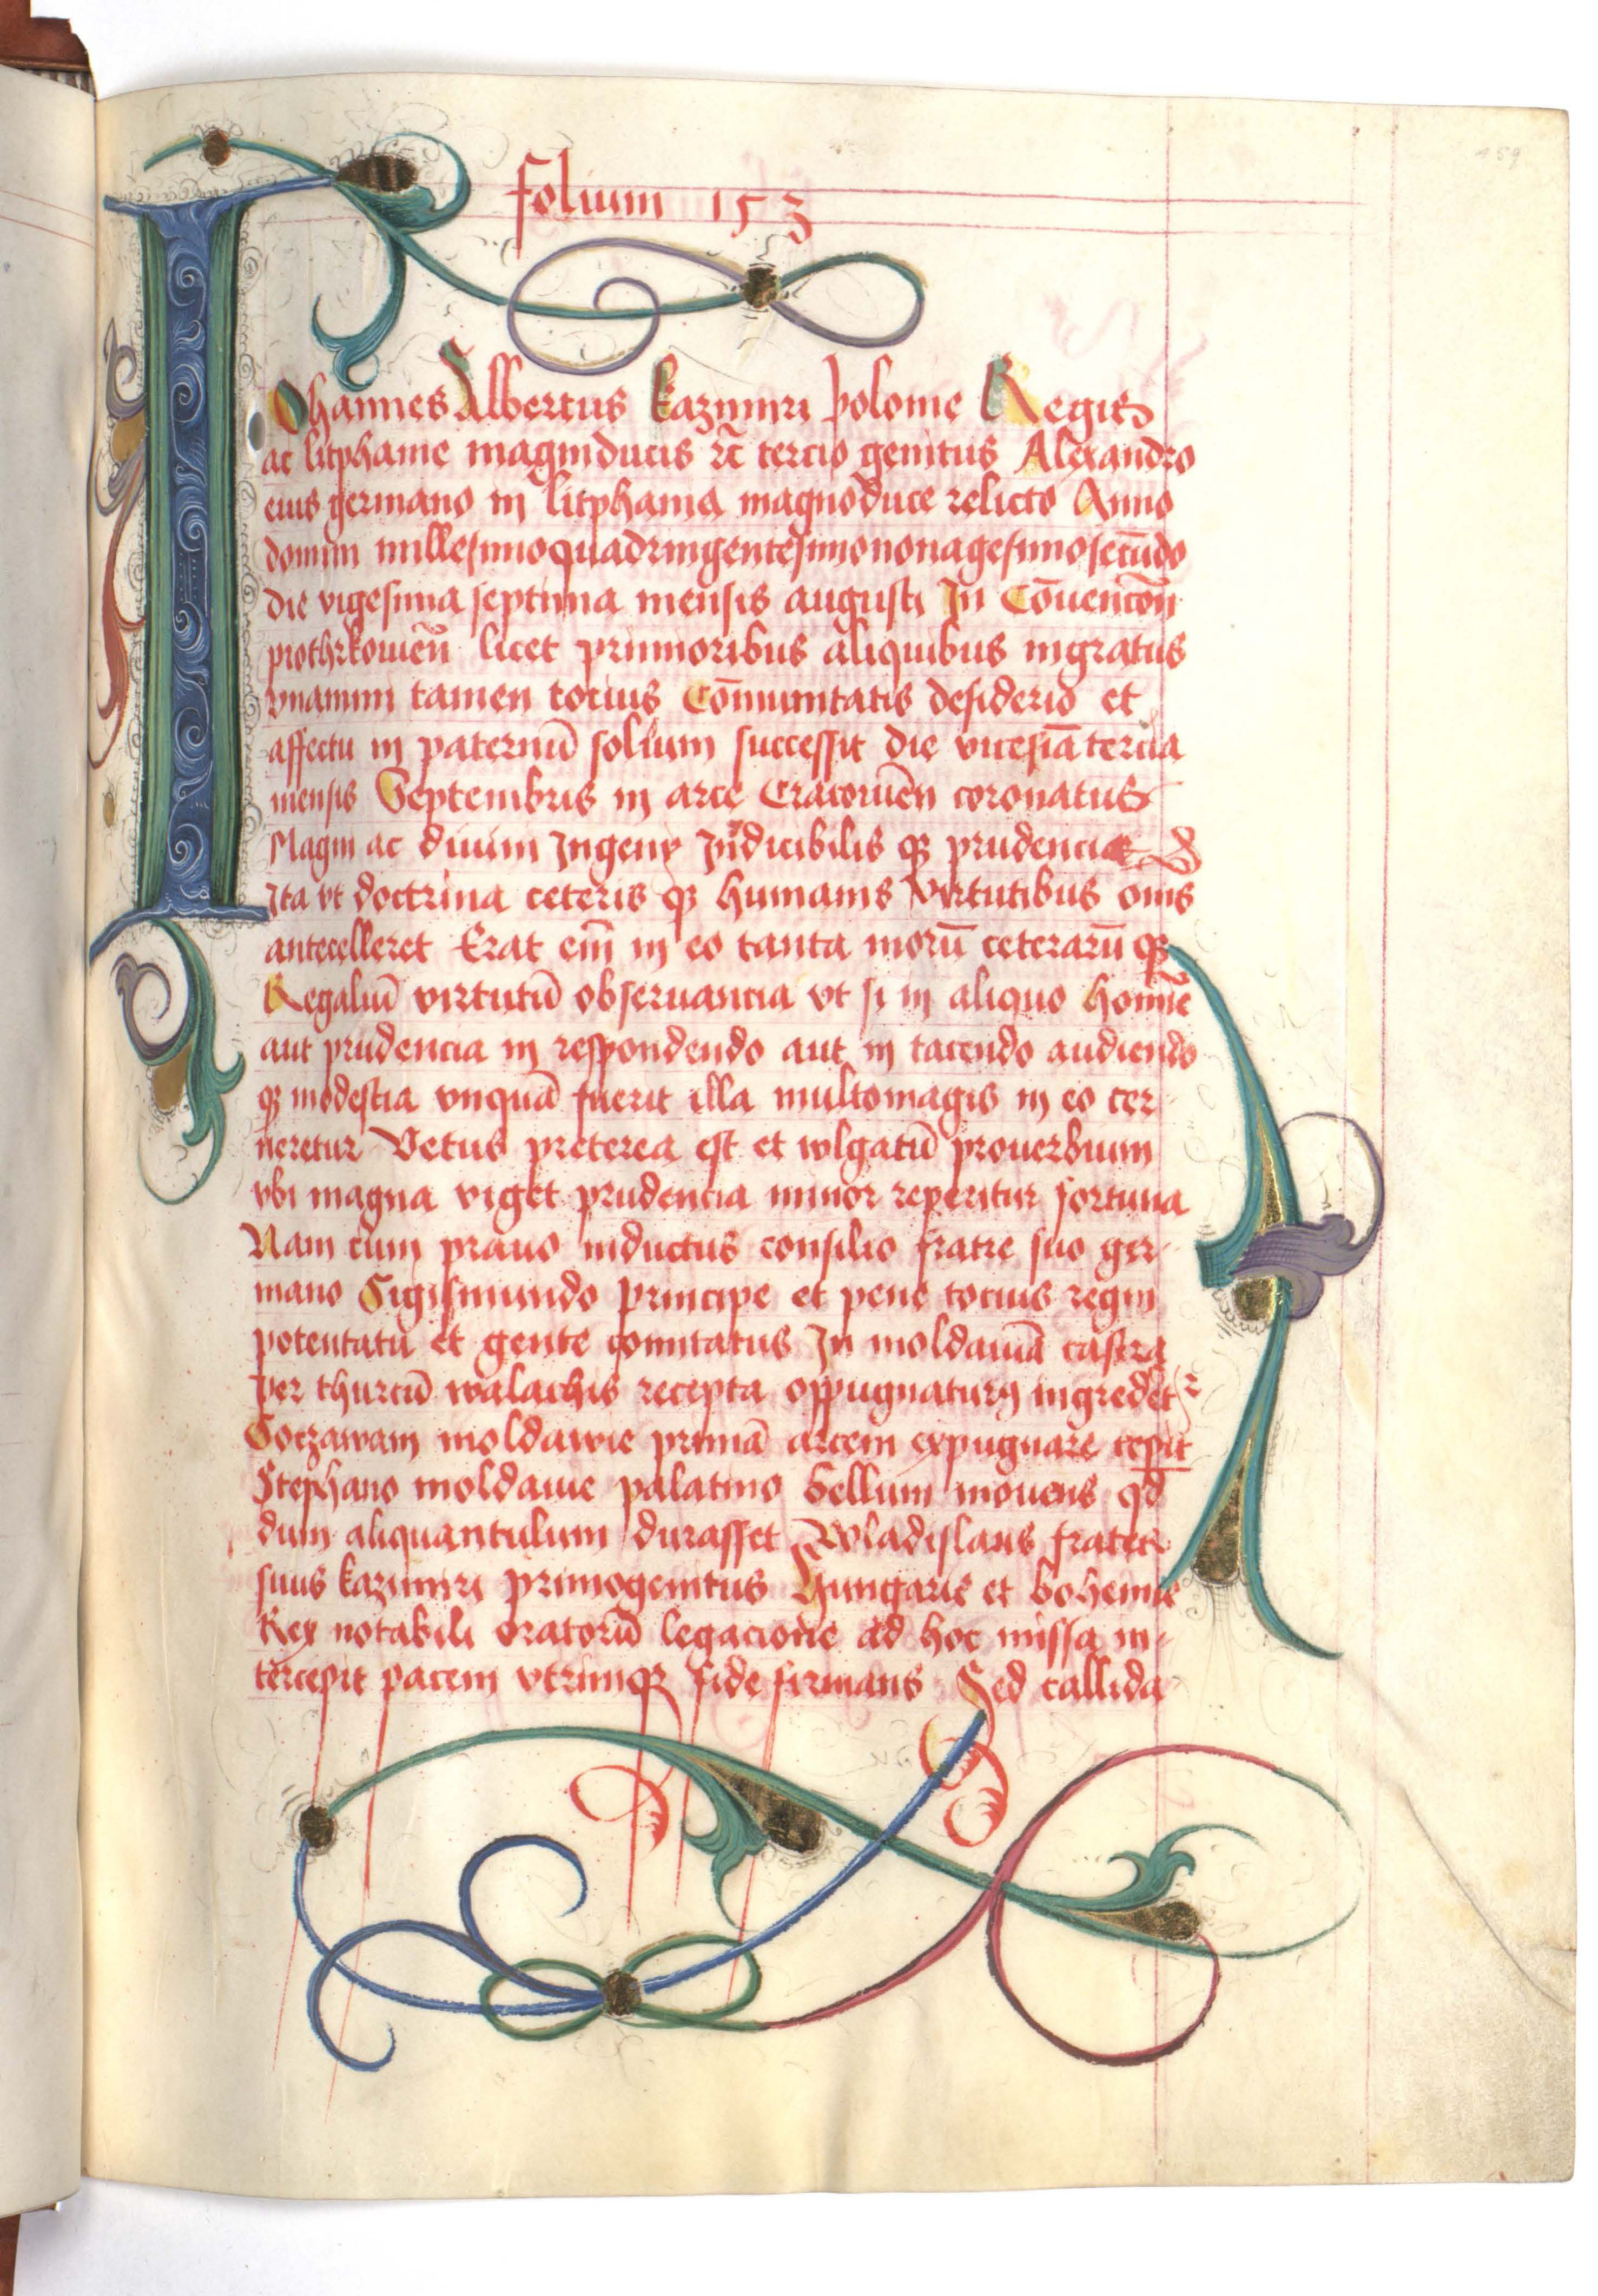 folium 153
IOhannes Albertus kazimiri polonie Regis
ac litphanie magniducis rc̄ tercio genitus Alexandro
eius germano in litphania magnoduce relicto Anno
domini millesimoquadringentesimononagesimosecūdo
die vigesima septima mensis augusti In Cōuencōn
piothrkouien̄ licet primoribus aliquibus ingratus
vnanimi tamen tocius Cōmunitatis desiderio et
affectu in paternū solium successit die vicesiā tercia
mensis Septembris in arce Cracouien̄ coronatus
Magni ac diuini Ingeny Indicibilis qȝ prudencie
Ita vt doctrina ceteris qȝ humanis virtutibus om̄s
antecelleret Erat em̄ in eo tanta morū ceterarū qȝ
Regaliū virtutū obseruancia vt si in aliquo homīe
aut prudencia in respondendo aut in tacendo audiendo
qȝ modestia vnquā fuerit illa multomagis in eo cer-
neretur Vetus preterea est et wlgatū prouerbium
vbi magna viget prudencia minor reperitur fortuna
Nam cum prauo inductus consilio fratre suo ger-
mano Sigismundo principe et pene tocius regni
potentatu et gente comitatus In moldauiā castra
per thurcū walachis recepta oppugnaturꝯ ingredetr
Soczawam moldawie primā arcem expugnare cepit
Stephano moldauie palatino bellum mouens qd̄
dum aliquantulum durasset Wladislaus frater
suus kazimiri primogenitus Hungarie et bohemie
Rex notabili oratorū legacione ad hoc missa in-
tercepit pacem vtrimqȝ fide firmans Sed callida
459